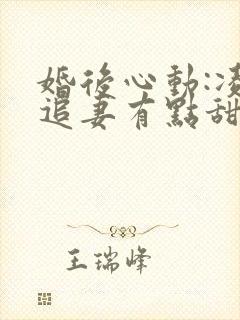 婚後心動:凌
追妻有點甜
王瑞峰